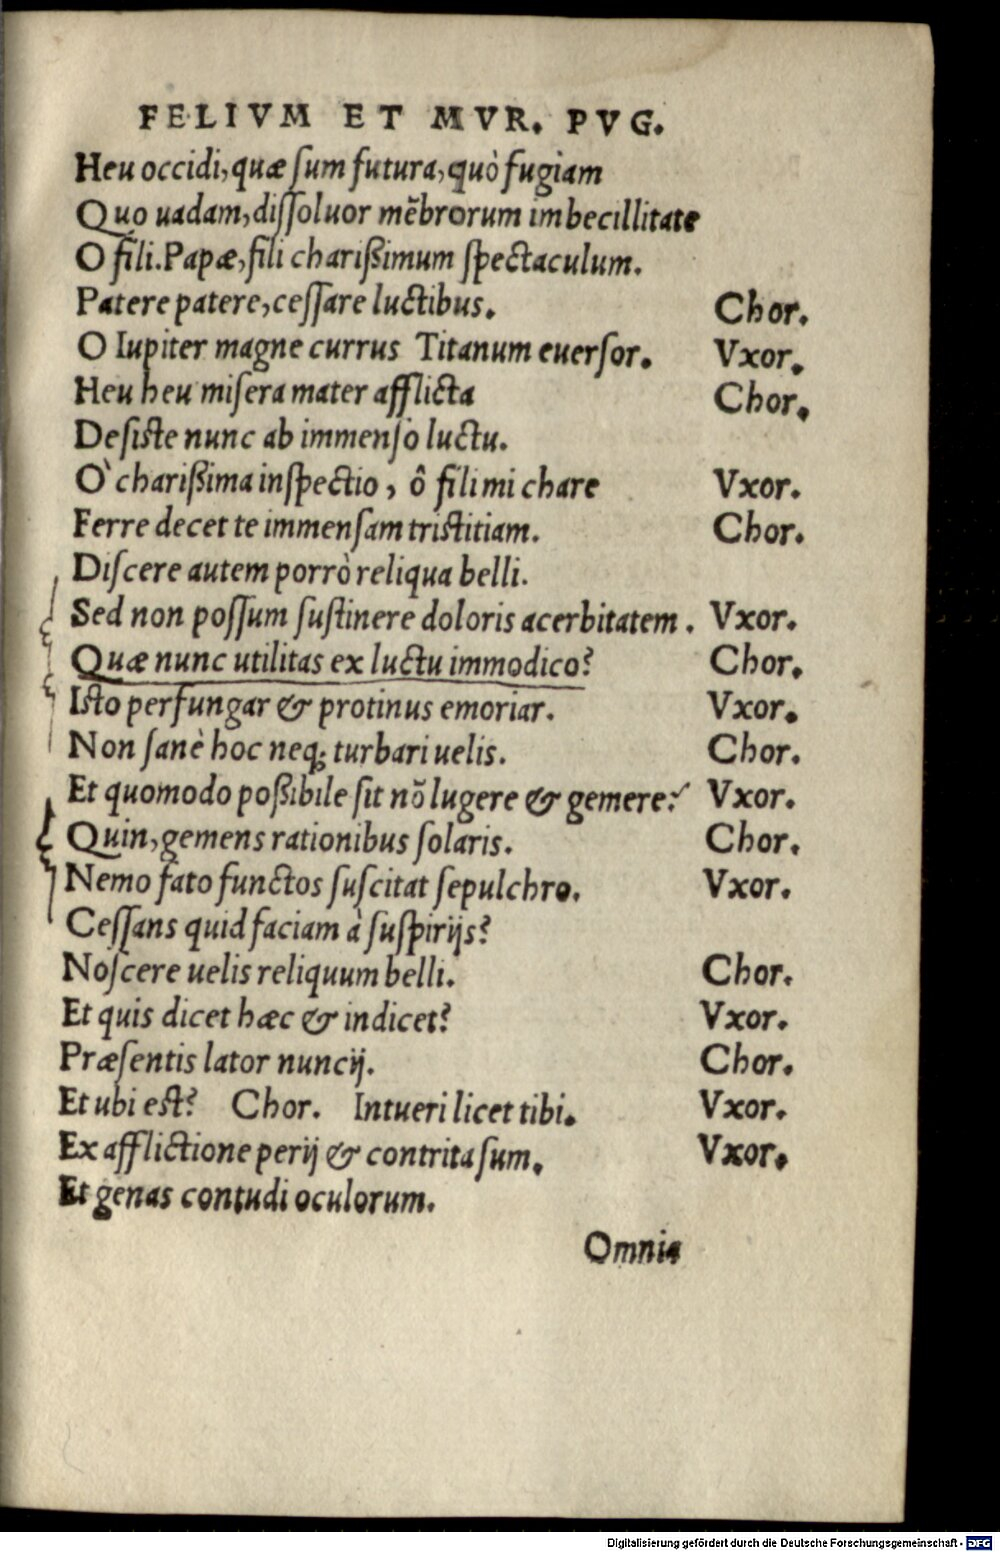 FELIVM ET MVR. PVG.
Heu occidi, quæ ſum futura, quò fugiam
Quo uadam, diſſoluor mẽbrorum imbecillitate
O fili. Papæ, fili chariſsimum ſpectaculum.
Patere patere, ceſſare luctibus. Chor.
O Iupiter magne currus Titanum euerſor. Vxor.
Heu heu miſera mater afflicta Chor.
Deſiste nunc ab immenſo luctu.
O` chariſsima inſpectio, ô fili mi chare Vxor.
Ferre decet te immenſam tristitiam. Chor.
Diſcere autem porrò reliqua belli.
Sed non poſſum ſustinere doloris acerbitatem. Vxor.
Quæ nunc utilitas ex luctu immodico? Chor.
Isto perfungar & protinus emoriar. Vxor.
Non ſanè hoc neq; turbari uelis. Chor.
Et quomodo poſsibile ſit nõ lugere & gemere? Vxor.
Quin, gemens rationibus ſolaris. Chor.
Nemo fato functos ſuſcitat ſepulchro. Vxor.
Ceſſans quid faciam à ſuſpirijs?
Noſcere uelis reliquum belli. Chor.
Et quis dicet hæc & indicet? Vxor.
Præſentis lator nuncij. Chor.
Et ubi est? Chor. Intueri licet tibi. Vxor.
Ex afflictione perij & contrita ſum. Vxor.
Et genas contudi oculorum.
Omnia
Digitalisierung gefördert durch die Deutsche Forschungsgemeinschaft - DFG